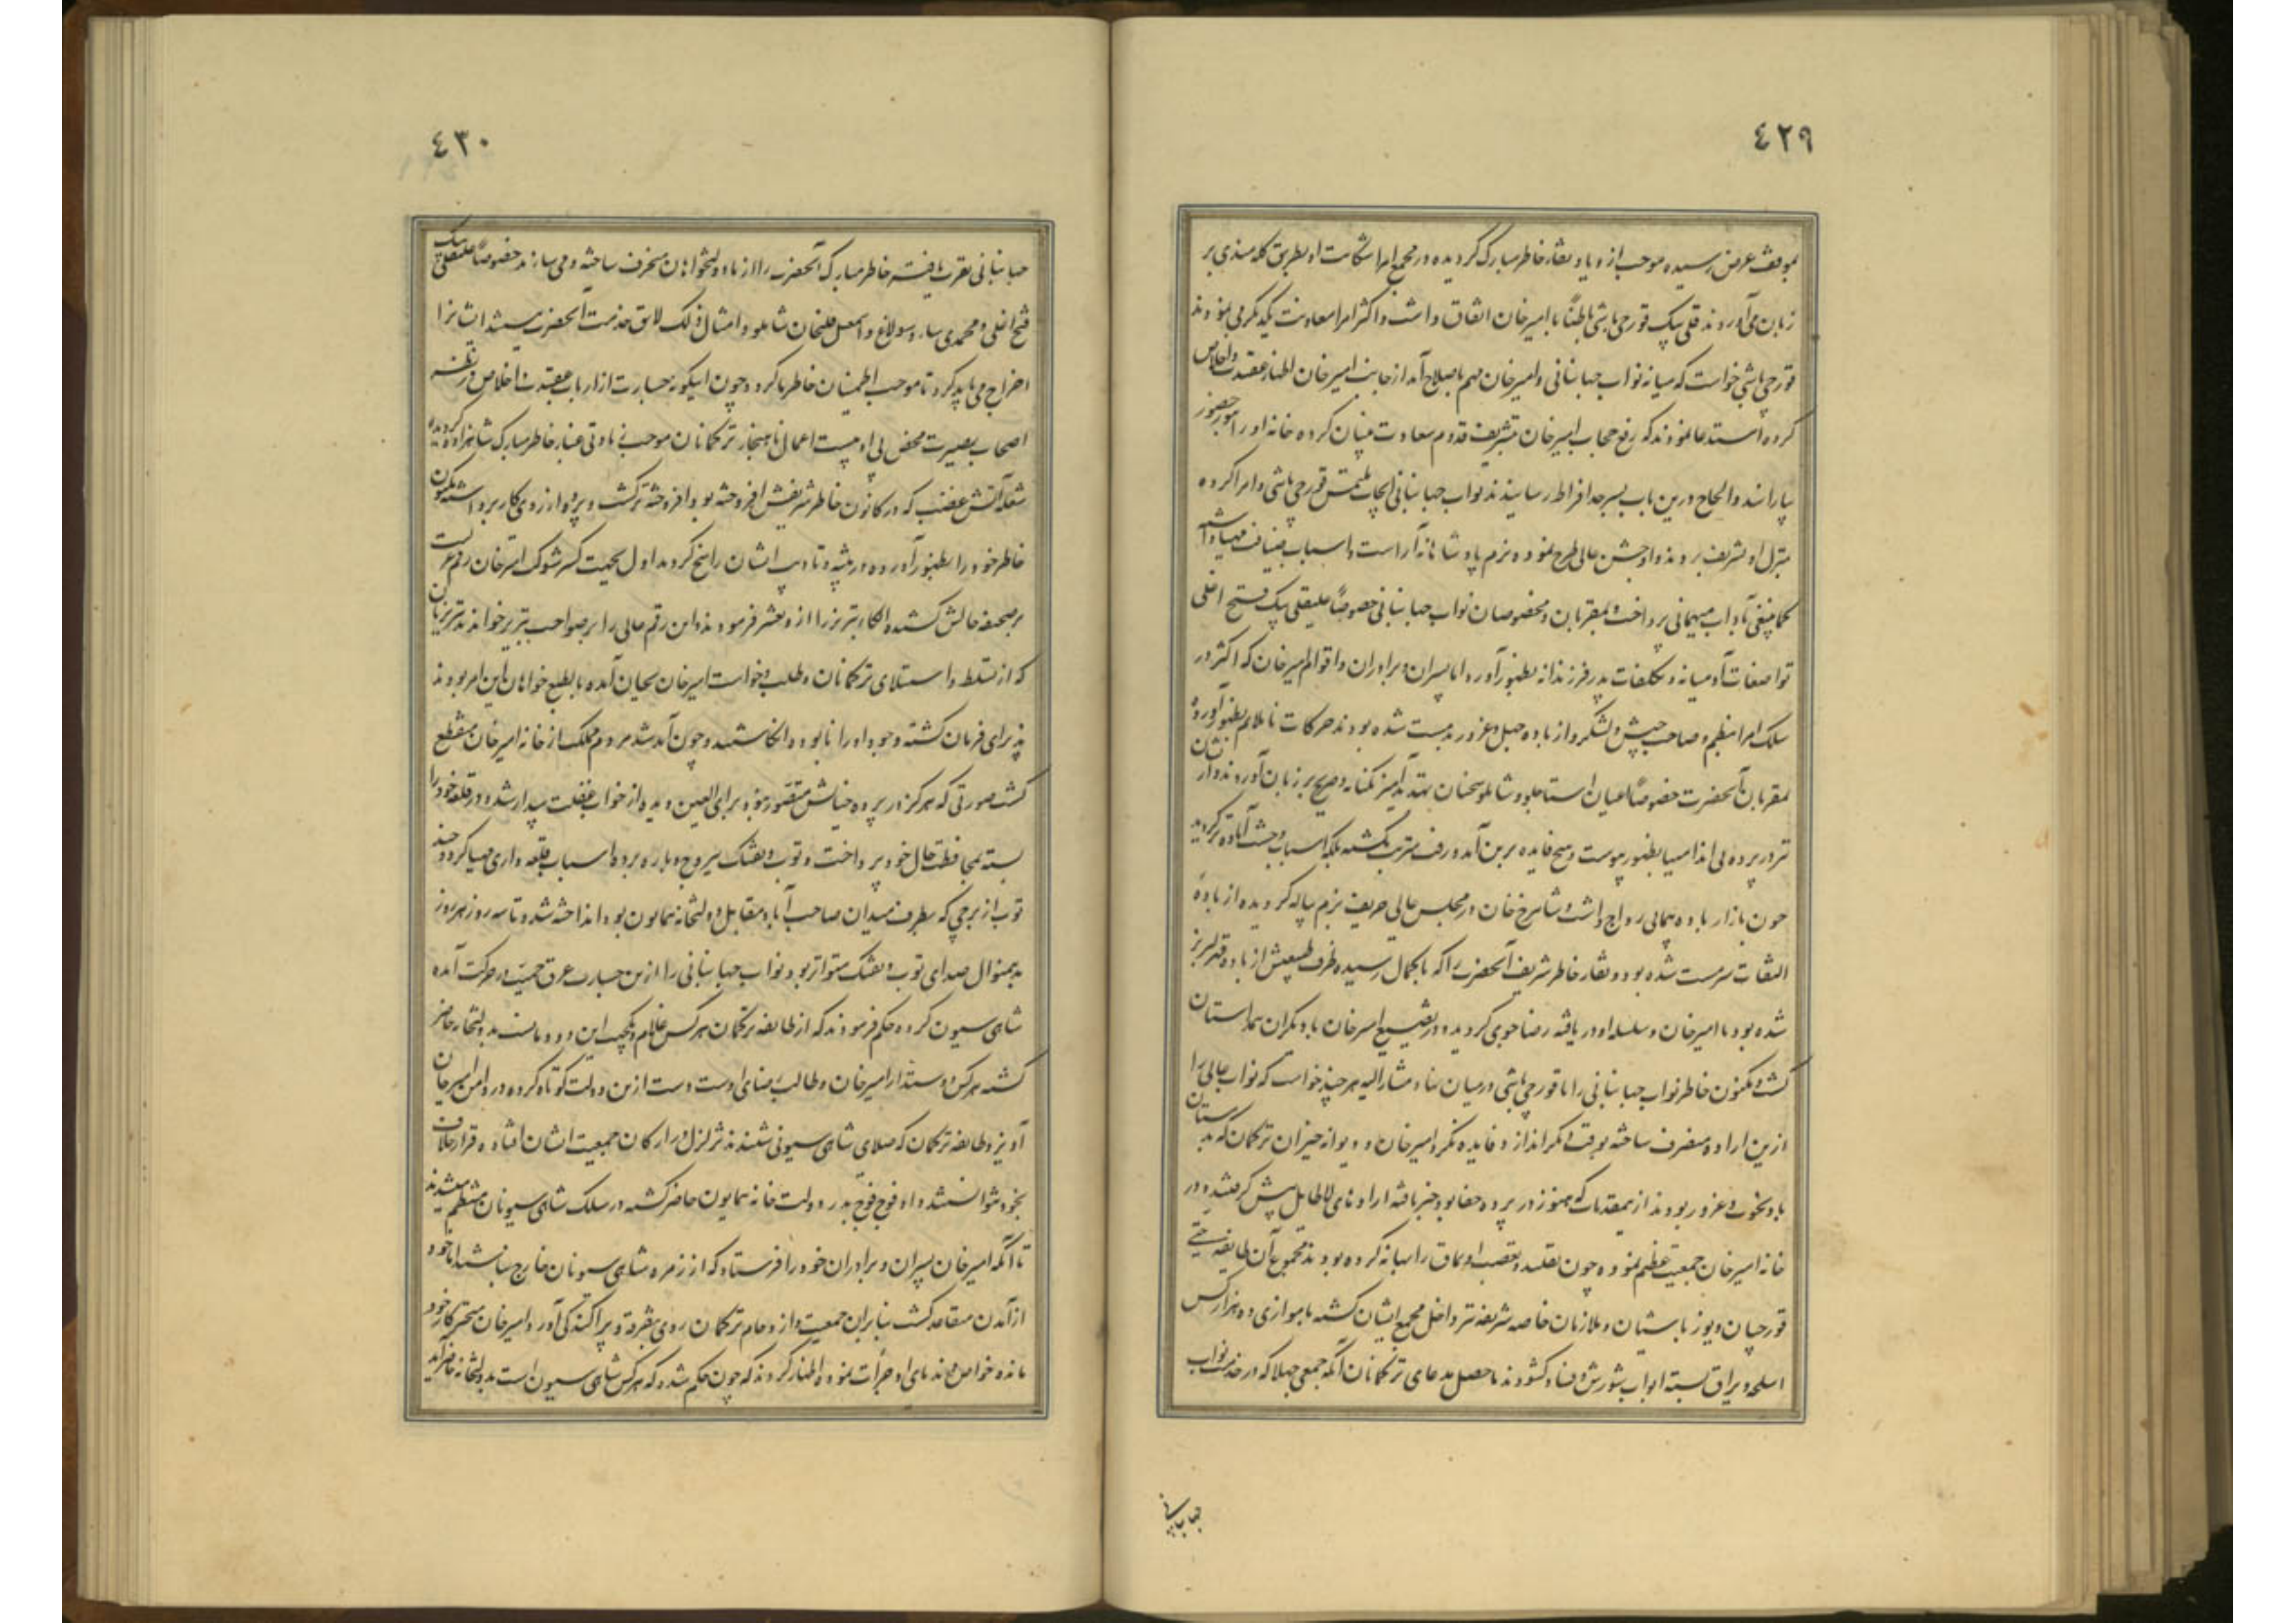 ٤٢٩
بموقف عرض رسیده موجب ازدیاد نقار خاطر مبارک گردیده در مجمع امرا شکایت او بطریق گله مندی بر
زبان می آوردند قلی بیک قورچی باشی باطناً با امیر خان اتفاق داشت و اکثر امرا معاونت یکدیگر می نمودند
قورچی باشی خواست که میانه نواب جهانبانی و امیر خان مهم باصلاح آمد از جانب امیر خان اظهار عقیدت و اخلاص
کرده استدعا نمودند که رفع حجاب امیر خان بتشریف قدوم سعادت نشان کرده خانه او را بنور حضور
بیارایند و الحاح درین باب بسرحد افراط رسانیدند نواب جهانبانی ایجاب ملتمس قورچی باشی و امرا کرده
بمنزل او تشریف بردند و او جشن عالی طرح نموده بزم پادشاهانه آراست و اسباب ضیافت مهیا داشته
کما ینبغی بآداب میهمانی پرداخت و بمقربان و مخصوصان نواب جهانبانی خصوصاً علیقلی بیک فتح اغلی
تواضعات آدمیانه و تکلفات پدر فرزندانه بظهور آورد اما پسران و برادران و اقوام امیر خان که اکثر در
سلک امرا منتظم و صاحب جیش و لشکر و از باده جهل و غرور بدمست شده بودند حرکات ناملایم بظهور آورده
بمقربان آنحضرت خصوصاً اعیان استاجلو و شاملو سخنان تهدید آمیز بکنایه و صریح بر زبان آوردند و از ایشان
نیز در پرده بی اندامیها بظهور پیوست و هیچ فایده برین آمد و رفت مترتب نگشته بلکه اسباب وحشت آماده تر گردید
چون بازار باده پیمائی رواج داشت و شاهرخ خان در مجلس عالی حریف بزم پیاله گردیده از بادهٔ
التفات سرمست شده بود و نقار خاطر شریف آنحضرت را که بکمال رسیده ظرف طبیعتش از باده قهر لبریز
شده بود با امیر خان و سلسله او دریافته رضا جوی گردیده در تضییع امیر خان با دیگران همداستان
گشت و مکنون خاطر نواب جهانبانی را با قورچی باشی در میان نهاد مشارالیه هر چند خواست که نواب عالی را
ازین اراده منصرف ساخته بوقت دیگر اندازد فایده نکرد امیر خان و دیوانه خیزان ترکمان که بدمستان
باده نخوت و غرور بودند ازین مقدمات که هنوز در پرده خفا بود خبر یافته اراده های لاطایل پیش گرفتند و در
خانه امیر خان جمعیت عظیم نموده چون تقلید و تعصب اویماق را بهانه کرده بودند مجموع آن طایفه حتی
قورچیان و یوزباشیان و ملازمان خاصه شریفه نیز داخل مجمع ایشان گشته بموازی ده هزار کس
اسلحه و یراق بسته ابواب شورش و فساد گشودند ماحصل مدعای ترکمانان آنکه جمعی جهلا که در خدمت نواب
جهانبانی
٤٣٠
جهانبانی تقرب یافته خاطر مبارک آنحضرت را از ما دولتخواهان منحرف ساخته و می سازند خصوصاً علیقلی بیک
فتح اغلی و محمدی ساروسولاغ و اسمعیل قلیخان شاملو و امثال ذلک لایق خدمت آنحضرت نیستند ایشانرا
اخراج می باید کرد تا موجب اطمینان خاطر ما گردد چون اینگونه جسارت از ارباب عقیدت و اخلاص در نظر
اصحاب بصیرت محض بی ادبیست اعمال ناهنجار ترکمانان موجب زیادتی غبار خاطر مبارک شاهزاده گردیده
شعله آتش غضب که در کانون خاطر شریفش افروخته بود افروخته تر گشت و پرده از روی کار برداشته مکنون
خاطر خود را بظهور آورده در تنبیه و تادیب ایشان راسخ گردید اول بجهت کسر شوکت امیر خان رقم عزلت
بر صحیفه حالش کشیده الکاء تبریز را ازو تغییر فرمودند و این رقم عالی را بر صواحب تبریز خواندند تبریزیان
که از تسلط و استیلای ترکمانان و طلب و خواست امیر خان بجان آمده بالطبع خواهان این امر بودند
پذیرای فرمان گشته وجود او را نابود انگاشتند و چون آمد شد مردم مملکت از خانه امیر خان منقطع
گشت صورتی که هرگز در پرده خیالش متصور نبود برای العین دیده از خواب غفلت بیدار شده در قلعه خود را
بسته بمحافظت حال خود پرداخت و توپ و تفنگ ببروج و باره برده اسباب قلعه داری مهیا کرد و چند
توپ از برجی که بطرف میدان صاحب آباد مقابل دولتخانه همایون بود انداخته شد و تا سه روز هر روز
بدینمنوال صدای توپ و تفنگ متواتر بود نواب جهانبانی را ازین جسارت عرق حمیت در حرکت آمده
شاهی سیون کرده حکم فرمودند که از طایفه ترکمان هر کس غلام و یکجهت این دودمانست بدولتخانه حاضر
گشته هر کس دوستدار امیر خان و طالب رضای اوست دست ازین دولت کوتاه کرده در دامن امیر خان
آویزد طایفه ترکمان که صلای شاهی سیونی شنیدند تزلزل در ارکان جمعیت ایشان افتاده قرار خلاف
بخود نتوانستند داد فوج فوج بدر دولت خانه همایون حاضر گشته در سلک شاهی سیونان منتظم میشدند
تا آنکه امیر خان پسران و برادران خود را فرستاد که از زمره شاهی سیونان خارج نباشند اما خود
از آمدن متقاعد گشت بنابران جمعیت و ازدحام ترکمان روی بتفرقه و پراکندگی آورد امیر خان متحیر کار خود
مانده خواص و ندمای او جرأت نموده اظهار کردند که چون حکم شده که هر کس شاهی سیون است بدولتخانه حاضر آید